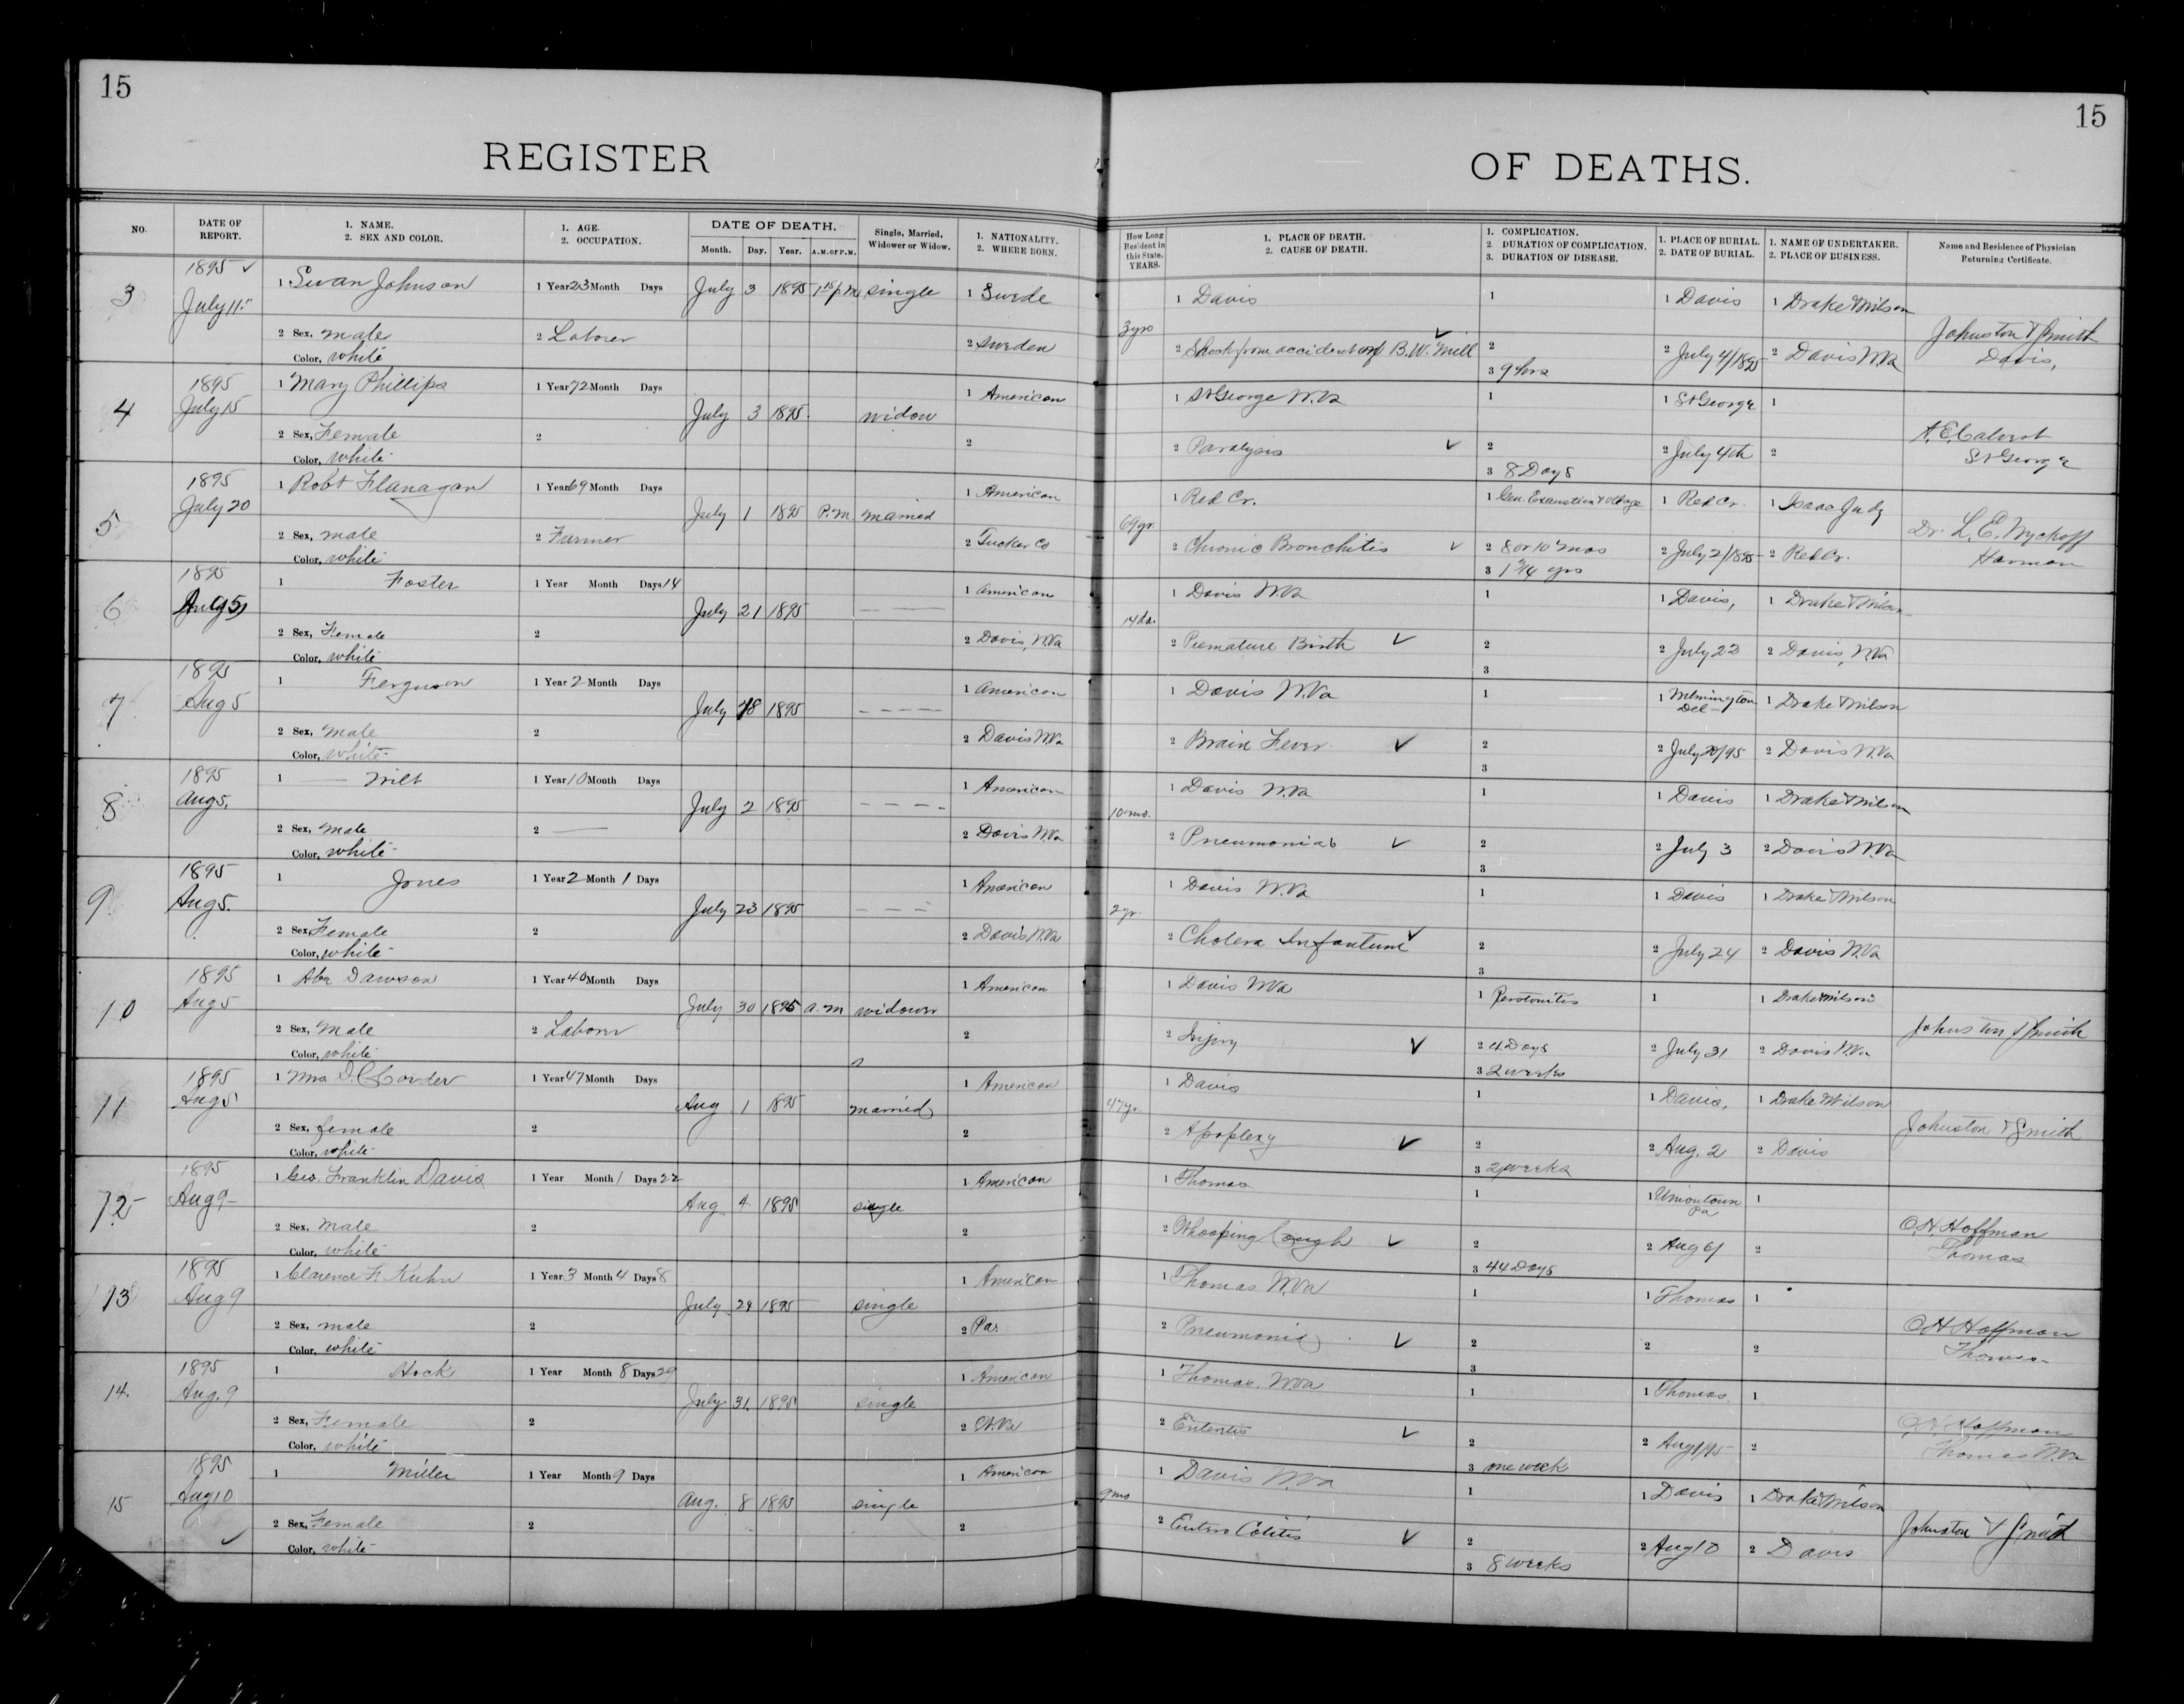 15
15
REGISTER
OF DEATHS.
NO.
DATE OF REPORT.
1. NAME.
2. SEX AND COLOR.
1. AGE.
2. OCCUPATION.
DATE OF DEATH.
Month. Day. Year. A.M. or P.M.
Single, Married, Widower or Widow.
1. NATIONALITY.
2. WHERE BORN.
How Long Resident in this State. YEARS.
1. PLACE OF DEATH.
2. CAUSE OF DEATH.
1. COMPLICATION.
2. DURATION OF COMPLICATION.
3. DURATION OF DISEASE.
1. PLACE OF BURIAL.
2. DATE OF BURIAL.
1. NAME OF UNDERTAKER.
2. PLACE OF BUSINESS.
Name and Residence of Physician Returning Certificate.
3 1895 July 11 1 Swan Johnson 1 Year 23 Month Days July 3 1895 P.M single 1 Swede 1 Davis 1 1 Davis 1 Drake & Wilson
2 Sex, male 2 Laborer 2 Sweden 3 yrs 2 Shock from accident B.W. Mill 2 2 July 4/1895 2 Davis W.Va Johnston & Smith
Color, white 3 9 hrs Davis,
4 1895 July 15 1 Mary Phillips 1 Year 72 Month Days July 3 1895 widow 1 American 1 St George W.Va 1 1 St George 1
2 Sex, Female 2 2 2 Paralysis 2 2 July 4th 2 A.E. Calvert
Color, white 3 8 Days St George
5 1895 July 20 1 Robt Flanagan 1 Year 69 Month Days July 1 1895 P.M married 1 American 1 Red Cr. 1 Gen. Exaustion & old age 1 Red Cr. 1 Isaac Judy
2 Sex, male 2 Farmer 2 Tucker Co 69 yr. 2 Chronic Bronchitis 2 8 or 10 mos 2 July 2/1895 2 Red Cr. Dr. L.E. Wyckoff
Color, white 3 1 3/4 yrs Harman
6 1895 Aug 5 1 Foster 1 Year Month Days 14 July 21 1895 1 American 1 Davis W.Va 1 1 Davis, 1 Drake & Wilson
2 Sex, Female 2 2 Davis, W.Va 14 da. 2 Premature Birth 2 2 July 22 2 Davis, W.Va
Color, white 3
7 1895 Aug 5 1 Ferguson 1 Year 2 Month Days July 1895 1 American 1 Davis W.Va 1 1 Wilmington Del 1 Drake & Wilson
2 Sex, male 2 2 Davis W.Va 2 Brain Fever. 2 2 July /95 2 Davis W.Va
Color, white 3
8 1895 Aug 5, 1 Wilt 1 Year 10 Month Days July 2 1895 1 American 1 Davis W.Va 1 1 Davis 1 Drake & Wilson
2 Sex, male 2 2 Davis W.Va 10 mo. 2 Pneumonia 2 2 July 3 2 Davis W.Va
Color, white 3
9 1895 Aug 5. 1 Jones 1 Year 2 Month 1 Days July 23 1895 1 American 1 Davis W.Va 1 1 Davis 1 Drake & Wilson
2 Sex, Female 2 2 Davis W.Va 2 yr. 2 Cholera Infantum 2 2 July 24 2 Davis W.Va
Color, white 3
10 1895 Aug 5 1 Abe Dawson 1 Year 40 Month Days July 30 1895 a.m widower 1 American 1 Davis W.Va 1 Peretonitis 1 1 Drake & Wilson
2 Sex, Male 2 Laborer 2 2 Injury 2 4 Days 2 July 31 2 Davis W.Va Johnston & Smith
Color, white 3 2 weeks
11 1895 Aug 5 1 Mrs D.C. Corder 1 Year 47 Month Days Aug 1 1895 married 1 American 1 Davis 1 1 Davis, 1 Drake & Wilson
2 Sex, female 2 2 47 yr. 2 Apoplexy 2 2 Aug. 2 2 Davis Johnston & Smith
Color, white 3 2 weeks
12 1895 Aug 9 1 Geo. Franklin Davis 1 Year Month 1 Days 22 Aug 4 1895 single 1 American 1 Thomas 1 1 Uniontown Pa 1
2 Sex, Male 2 2 2 Whooping Cough 2 2 Aug 6/ 2 O.H. Hoffman
Color, white 3 44 Days Thomas
13 1895 Aug 9 1 Clarence F. Kuhn 1 Year 3 Month 4 Days 8 July 24 1895 single 1 American 1 Thomas W.Va 1 1 Thomas 1
2 Sex, male 2 2 Pa. 2 Pneumonia 2 2 2 O.H. Hoffman
Color, white 3 Thomas
14. 1895 Aug. 9 1 Hock 1 Year Month 8 Days 29 July 31 1895 single 1 American 1 Thomas. W.Va 1 1 Thomas. 1
2 Sex, Female 2 2 W.Va 2 Enteritis 2 2 Aug 1/95 2 O.H. Hoffman
Color, white 3 one week Thomas W.Va
15 1895 Aug 10 1 Miller 1 Year Month 9 Days Aug. 8 1895 single 1 American 1 Davis W.Va 1 1 Davis 1 Drake & Wilson
2 Sex, Female 2 2 9 mo 2 Entero Colitis 2 2 Aug 10 2 Davis Johnston & Smith
Color, white 3 8 weeks